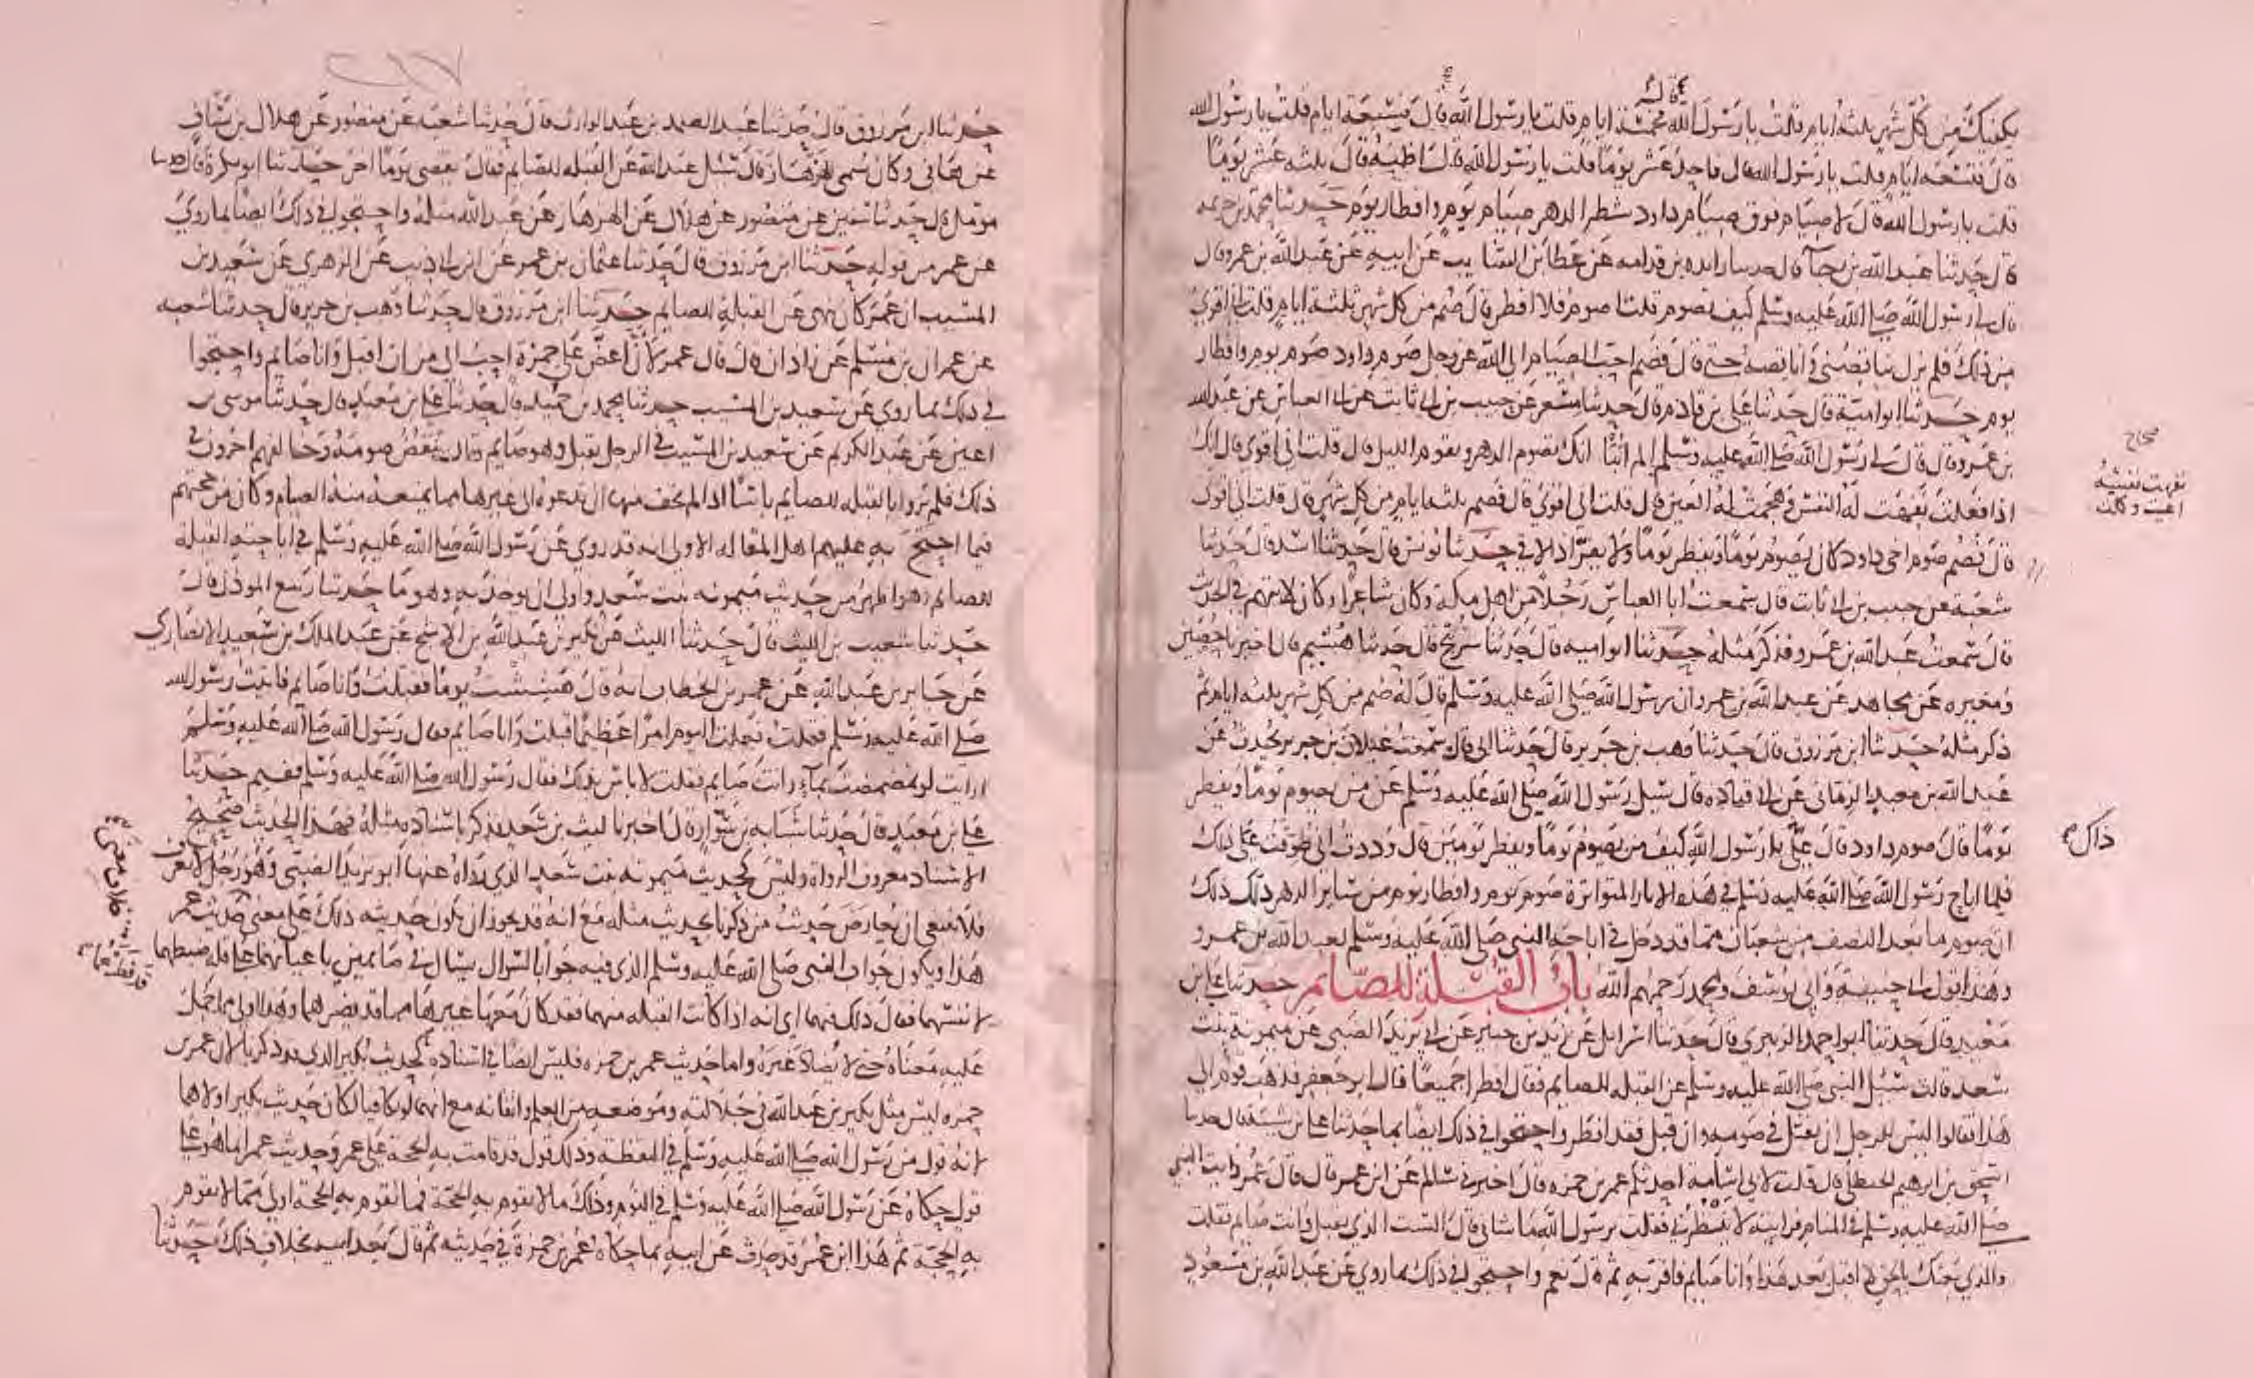 يكفيك من كل شهر ثلثة ايام قلت يا رسول الله قال فخمسة ايام قلت يا رسول الله قال فسبعة ايام قلت يا رسول الله
قال فتسعة ايام قلت يا رسول الله قال فاحد عشر يوما قلت يا رسول الله قال اظنه قال ثلثة عشر يوما
قلت يا رسول الله قال لا صيام فوق صيام داود شطر الدهر صيام يوم وافطار يوم حدثنا محمد بن خزيمة
قال حدثنا عبد الله بن رجاء قال حدثنا زايدة بن قدامة عن عطا بن السايب عن ابيه عن عبد الله بن عمرو قال
قال لي رسول الله صلى الله عليه وسلم كيف تصوم قلت اصوم فلا افطر قال صم من كل شهر ثلثة ايام قلت اني اقوى
من ذلك فلم يزل يناقصني واناقصه حتى قال فصم احب الصيام الى الله عز وجل صوم داود صوم يوم وافطار
يوم حدثنا ابو امية قال حدثنا علي بن قادم قال حدثنا مسعر عن حبيب بن ابي ثابت عن ابي العباس عن عبد الله
بن عمرو قال قال لي رسول الله صلى الله عليه وسلم الم انبا انك تصوم الدهر وتقوم الليل قال قلت اني اقوى قال انك
اذا فعلت نفهت له النفس وهجمت له العين قال قلت اني اقوى قال فصم ثلثة ايام من كل شهر قال قلت اني اقوى
قال فصم صوم اخي داود كان يصوم يوما ويفطر يوما ولا يفر اذا لاقى حدثنا يونس قال حدثنا اسد قال حدثنا
شعبة عن حبيب بن ابي ثابت قال سمعت ابا العباس رجلا من اهل مكة وكان شاعرا وكان لا يتهم في الحديث
قال سمعت عبد الله بن عمرو فذكر مثله حدثنا ابو امية قال حدثنا سريج قال حدثنا هشيم قال اخبرنا حصين
ومغيرة عن مجاهد عن عبد الله بن عمرو ان رسول الله صلى الله عليه وسلم قال له صم من كل شهر ثلثة ايام ثم
ذكر مثله حدثنا ابن مرزوق قال حدثنا وهب بن جرير قال حدثنا ابي قال سمعت غيلان بن جرير يحدث عن
عبد الله بن معبد الزماني عن ابي قتادة قال سئل رسول الله صلى الله عليه وسلم عن من يصوم يوما ويفطر
يوما قال صوم داود قال علي يا رسول الله كيف من يصوم يوما ويفطر يومين قال وددت اني طوقت على ذلك
فلما اباح رسول الله صلى الله عليه وسلم في هذه الاثار المتواترة صوم يوم وافطار يوم من ساير الدهر دلك ذلك
ان صوم ما بعد النصف من شعبان مما قد دخل في اباحة النبي صلى الله عليه وسلم لعبد الله بن عمرو
وهذا قول ابي حنيفة وابي يوسف ومحمد رحمهم الله باب القبلة للصايم حدثنا علي بن
معبد قال حدثنا ابو احمد الزبيري قال حدثنا اسرائل عن زيد بن جبير عن ابي يزيد الضبي عن ميمونة بنت
سعد قالت سئل النبي صلى الله عليه وسلم عن القبلة للصايم فقال افطرا جميعا قال ابو جعفر فذهب قوم الى
هذا فقالوا ليس للرجل ان يقبل في صومه وان قبل فقد افطر واحتجوا في ذلك ايضا بما حدثنا علي بن شيبة قال حدثنا
اسحق بن ابرهيم الحنظلي قال قلت لابي اسامة احدثكم عمر بن حمزة قال اخبرني سالم عن ابن عمر قال قال عمر رايت النبي
صلى الله عليه وسلم في المنام فرايته لا ينظرني فقلت يرسول الله ما شاني قال الست الذي يقبل وانت صايم فقلت
والذي بعثك بالحق لا اقبل بعد هذا وانا صايم فاقر به ثم قال نعم واحتجوا في ذلك بما روي عن عبد الله بن مسعود
صحاح
نفهت نفسه
اعيت وكلت
ذاك
حدثنا ابن مرزوق قال حدثنا عبد الصمد بن عبد الوارث قال حدثنا شعبة عن منصور عن هلال بن يساف
عن هاني وكان يسمى الهزهاز قال سئل عبد الله عن القبلة للصايم فقال يقضي يوما اخر حدثنا ابو بكرة قال حدثنا
مومل قال حدثنا سفين عن منصور عن هلال عن الهزهاز عن عبد الله مثله واحتجوا في ذلك ايضا بما روي
عن عمر من قوله حدثنا ابن مرزوق قال حدثنا عثمان بن عمر عن ابن ابي ذيب عن الزهري عن سعيد بن
المسيب ان عمر كان ينهى عن القبلة للصايم حدثنا ابن مرزوق قال حدثنا وهب بن جرير قال حدثنا شعبة
عن عمران بن مسلم عن زاذان قال قال عمر لان اعض على جمرة احب الي من ان اقبل وانا صايم واحتجوا
في ذلك بما روي عن سعيد بن المسيب حدثنا محمد بن حميد قال حدثنا علي بن معبد قال حدثنا موسى بن
اعين عن عبد الكريم عن سعيد بن المسيب في الرجل يقبل وهو صايم قال ينقض صومه وخالفهم اخرون في
ذلك فلم يروا بالقبلة للصايم باسا اذا لم يخف منها ان تدعوه الى غيرها مما يمنع منه الصايم وكان من حجتهم
فيما احتج به عليهم اهل المقالة الاولى انه قد روي عن رسول الله صلى الله عليه وسلم في اباحته القبلة
للصايم ما هو اظهر من حديث ميمونة بنت سعد واولى ان يوخذ به وهو ما حدثنا ربيع الموذن قال
حدثنا شعيب بن الليث قال حدثنا الليث عن بكير بن عبد الله بن الاشج عن عبد الملك بن سعيد الانصاري
عن جابر بن عبد الله عن عمر بن الخطاب انه قال هششت يوما فقبلت وانا صايم فاتيت رسول الله
صلى الله عليه وسلم فقلت فعلت اليوم امرا عظيما قبلت وانا صايم فقال رسول الله صلى الله عليه وسلم
ارايت لو تمضمضت بماء وانت صايم فقلت لا باس بذلك فقال رسول الله صلى الله عليه وسلم ففيم حدثنا
علي بن معبد قال حدثنا شبابة بن سوار قال اخبرنا ليث بن سعد فذكر باسناده مثله فهذا الحديث صحيح
الاسناد معروف الرواة وليس كحديث ميمونة بنت سعد الذي رواه عنها ابو يزيد الضبي وهو رجل لا يعرف
فلا ينبغي ان يعارض حديث من ذكرنا بحديث مثله مع انه قد يجوز ان يكون حديثه ذلك على معنى حديث عمر
هذا ويكون جواب النبي صلى الله عليه وسلم الذي فيه جوابا لسوال سيل في صايمين باعيانهما على قلة ضبطهما
لانفسهما فقال ذلك فيهما اي انه اذا كانت القبلة منهما فقد كان معها غيرها مما قد يضرهما وهذا اولى ما حمل
عليه معناه حتى لا يضاد غيره واما حديث عمر بن حمزة فليس ايضا في اسناده كحديث بكير الذي قد ذكرنا لان عمر بن
حمزة ليس مثل بكير بن عبد الله في جلالته وموضعه من العلم واتقانه مع انهما لو تكافيا لكان حديث بكير اولاهما
لانه قول من رسول الله صلى الله عليه وسلم في اليقظة وذلك قول قد قامت به الحجة على عمر وحديث عمر انما هو على
قول حكاه عن رسول الله صلى الله عليه وسلم في النوم وذلك ما لا يقوم به الحجة فما تقوم به الحجة اولى مما لا يقوم
به الحجة ثم هذا ابن عمر قد حدث عن ابيه بما حكاه عمر بن حمزة في حديثه ثم قال بعد ابيه بخلاف ذلك حدثنا